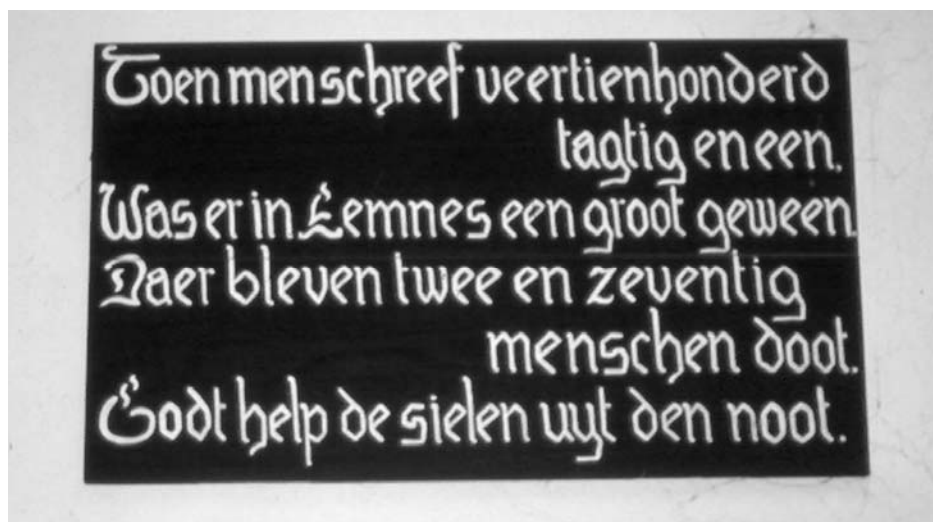 Toen men schreef veertienhonderd
tagtig en een.
Was er in Eemnes een groot geween.
Daer bleven twee en zeventig
menschen doot.
Godt help de sielen uyt den noot.